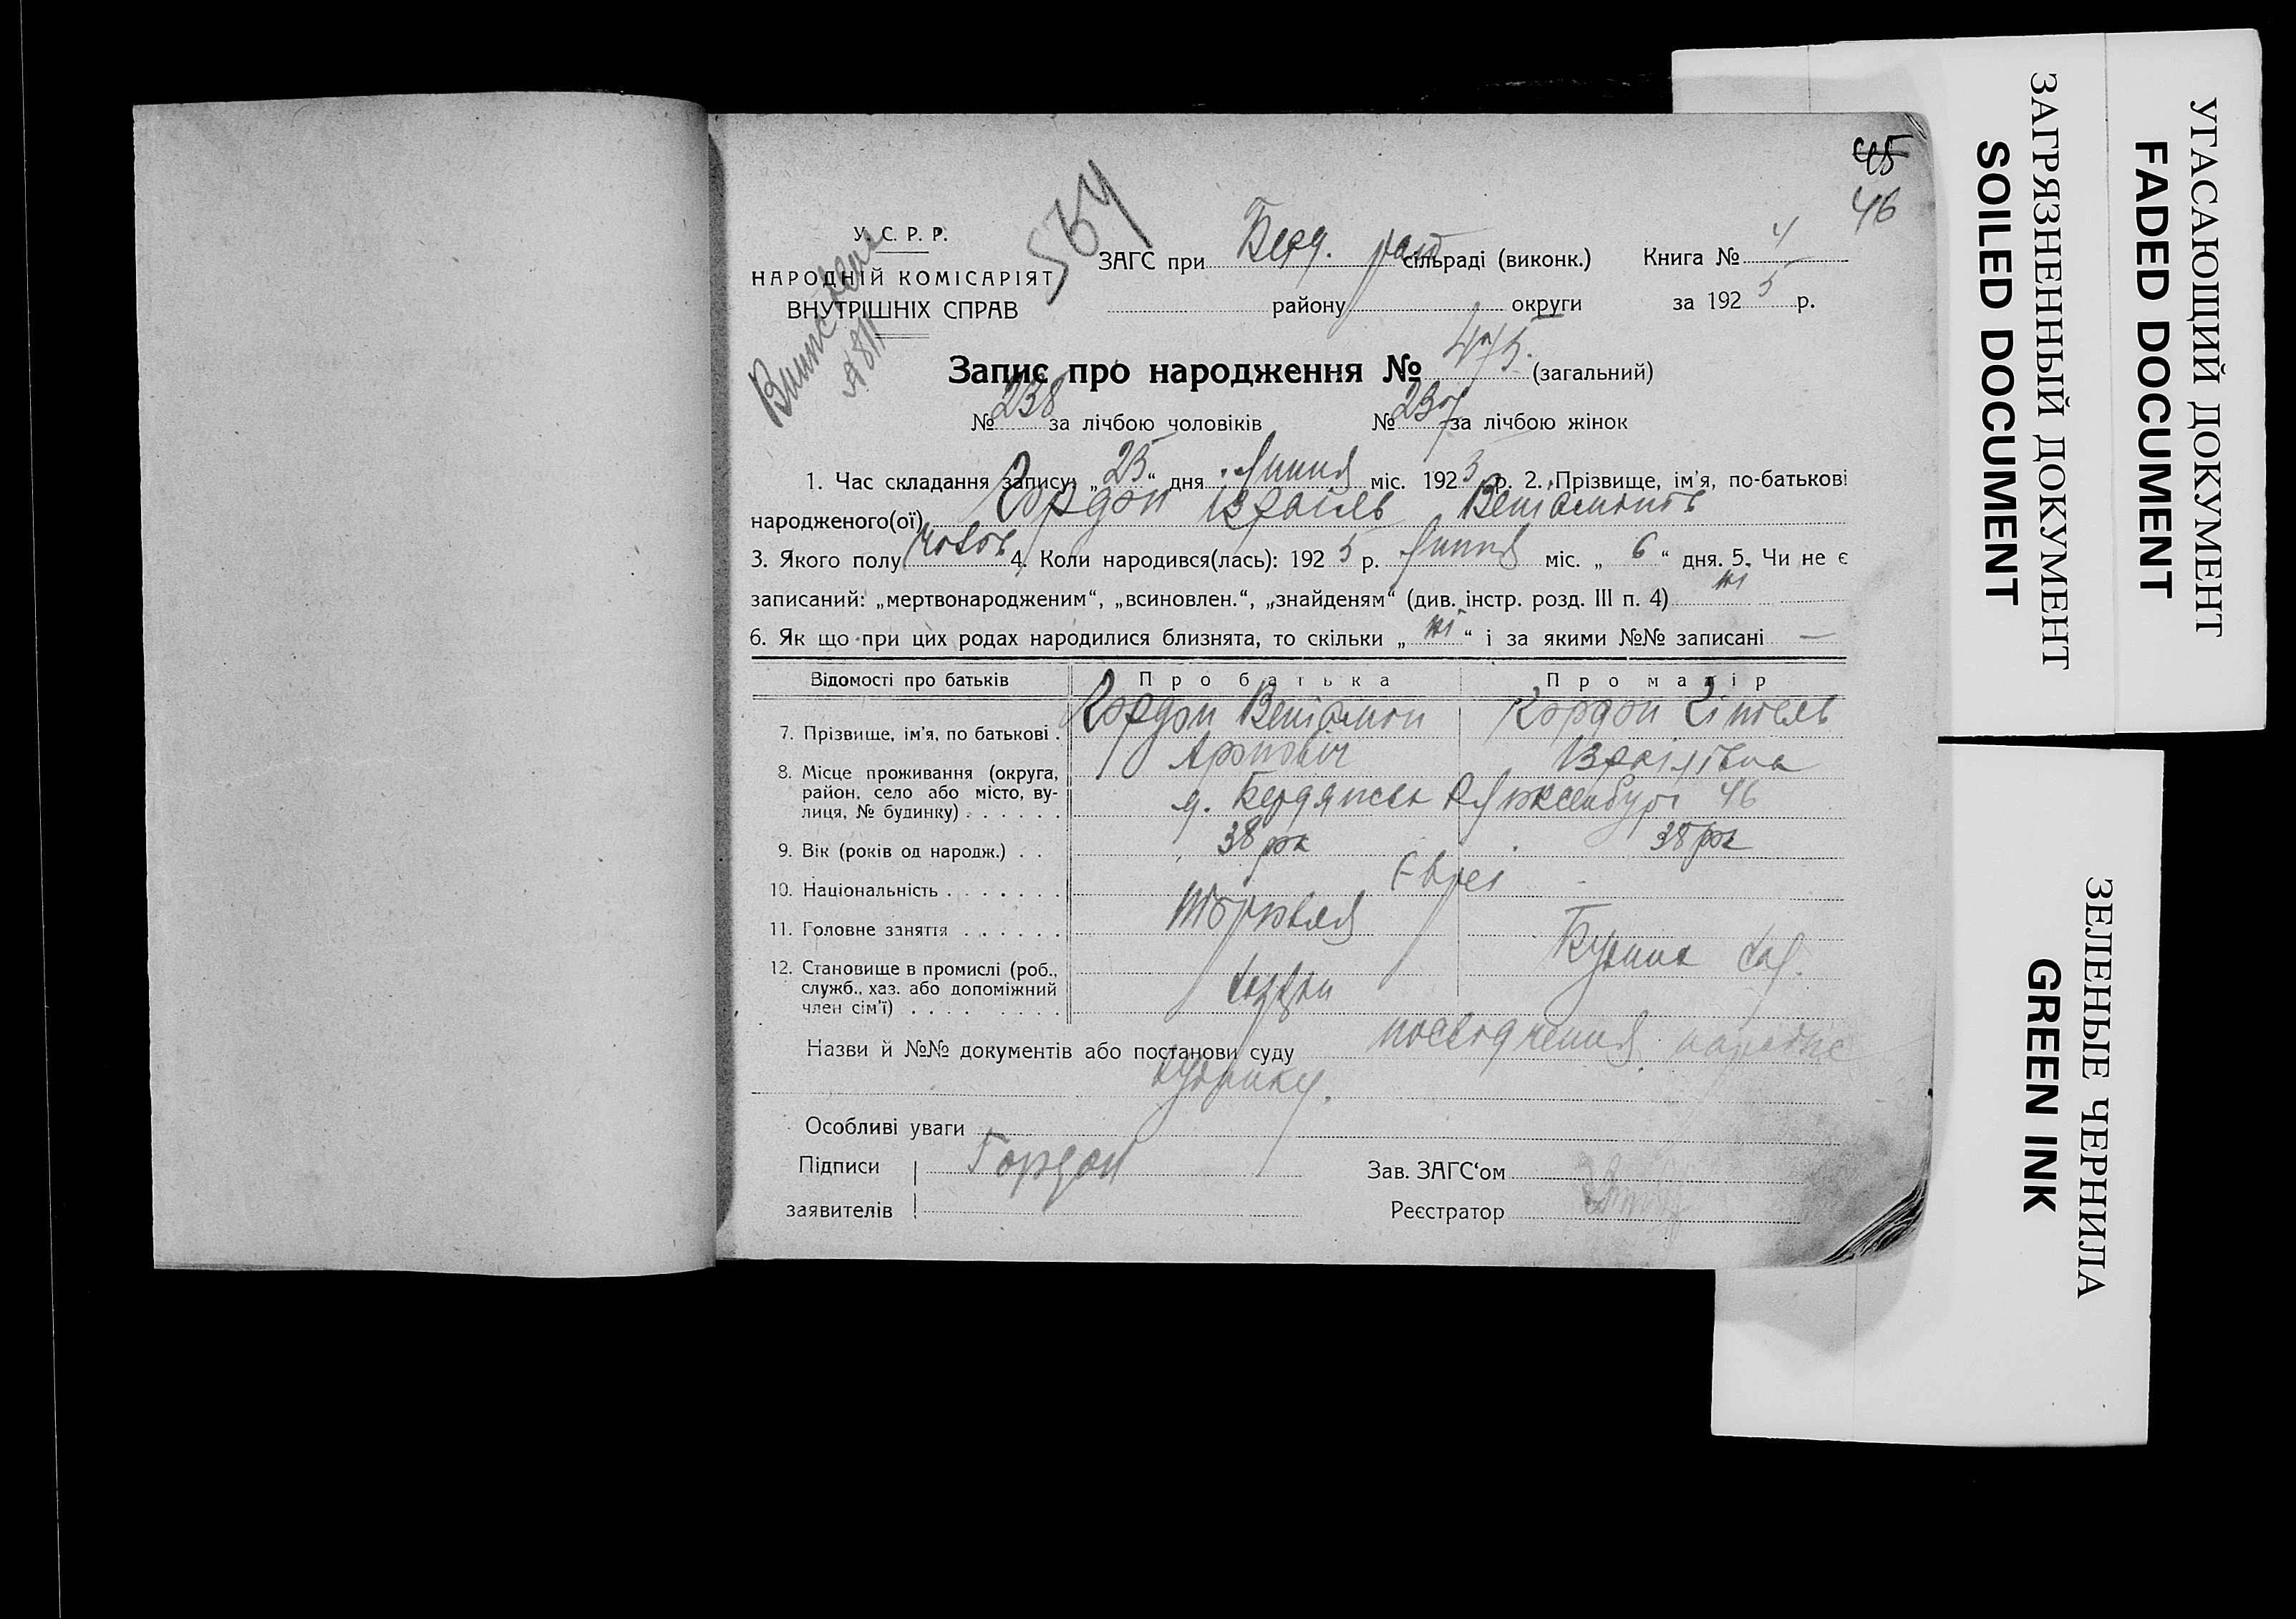 45
46
564
У. С. Р. Р.
НАРОДНІЙ КОМІСАРІЯТ
ВНУТРІШНІХ СПРАВ
ЗАГС при Берд. сільраді (виконк.) Книга № 4
району округи за 1925 р.
Запис про народження № 475. (загальний)
№ 238 за лічбою чоловіків № 237 за лічбою жінок
1. Час складання запису: „25“ дня Липня міс. 1925 р. 2. Прізвище, ім'я, по-батькові
народженого(ої) Гордон Ізраіль
3. Якого полу чолов 4. Коли народився(лась): 1925 р. Липня міс. „6“ дня. 5. Чи не є
записаний: „мертвонародженим“, „всиновлен.“, „знайденям“ (див. інстр. розд. III п. 4) ні
6. Як що при цих родах народилися близнята, то скільки „ні“ і за якими №№ записані —
Відомості про батьків Про батька Про матір
7. Прізвище, ім'я, по батькові . Гордон Веніамон Аронович Гордон Ізраілівна
8. Місце проживання (округа,
район, село або місто, ву-
лиця, № будинку) . . . . . . Бердянськ Р Люксембург 46
9. Вік (років од народж.) . . 38 рок 38 рок
10. Національність . . . . . . . Євреї
11. Головне заняття . . . . . . Торговля
12. Становище в промислі (роб.,
служб., хаз. або допоміжний
член сім'ї) . . . . . . . .
Назви й №№ документів або постанови суду посвідчення
будинку.
Особливі уваги
Підписи Гордон Зав. ЗАГС'ом
заявителів Реєстратор
УГАСАЮЩИЙ ДОКУМЕНТ
FADED DOCUMENT
ЗАГРЯЗНЕННЫЙ ДОКУМЕНТ
SOILED DOCUMENT
ЗЕЛЕНЫЕ ЧЕРНИЛА
GREEN INK